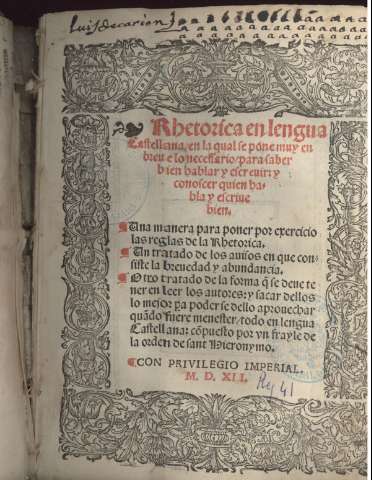 luis de carion
Rhetorica en lengua
Castellana, en la qual se pone muy en
breue lo necessario, para saber
bien hablar y escreuir: y
conoscer quien ha-
bla y escriue
bien.
¶ Una manera para poner por exercicio
las reglas de la Rhetorica.
¶ Un tratado de los auisos en que con-
siste la breuedad y abundancia.
¶ Otro tratado de la forma q̃ se deue te
ner en leer los autores: y sacar dellos
lo mejor p̃a poder se dello aprouechar
quãdo fuere menester, todo en lengua
Castellana: cõpuesto por vn frayle de
la orden de sant Hieronymo.
¶ CON PRIVILEGIO IMPERIAL.
M. D. XLI.
41